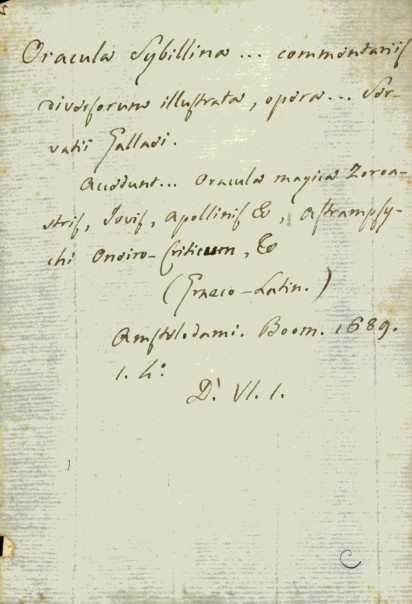 Oracula Sybillina ... commentariis
diversorum illustrata, opera ... Ser-
vatii Gallaei.
Accedunt ... Oracula magica Zoroa-
stris, Jovis, Apollinis &, Astrampsy-
chi Oneiro-Criticum, &
(Graeco-Latin.)
Amstelodami. Boom. 1689.
1. 4:
D. VI. 1.
C